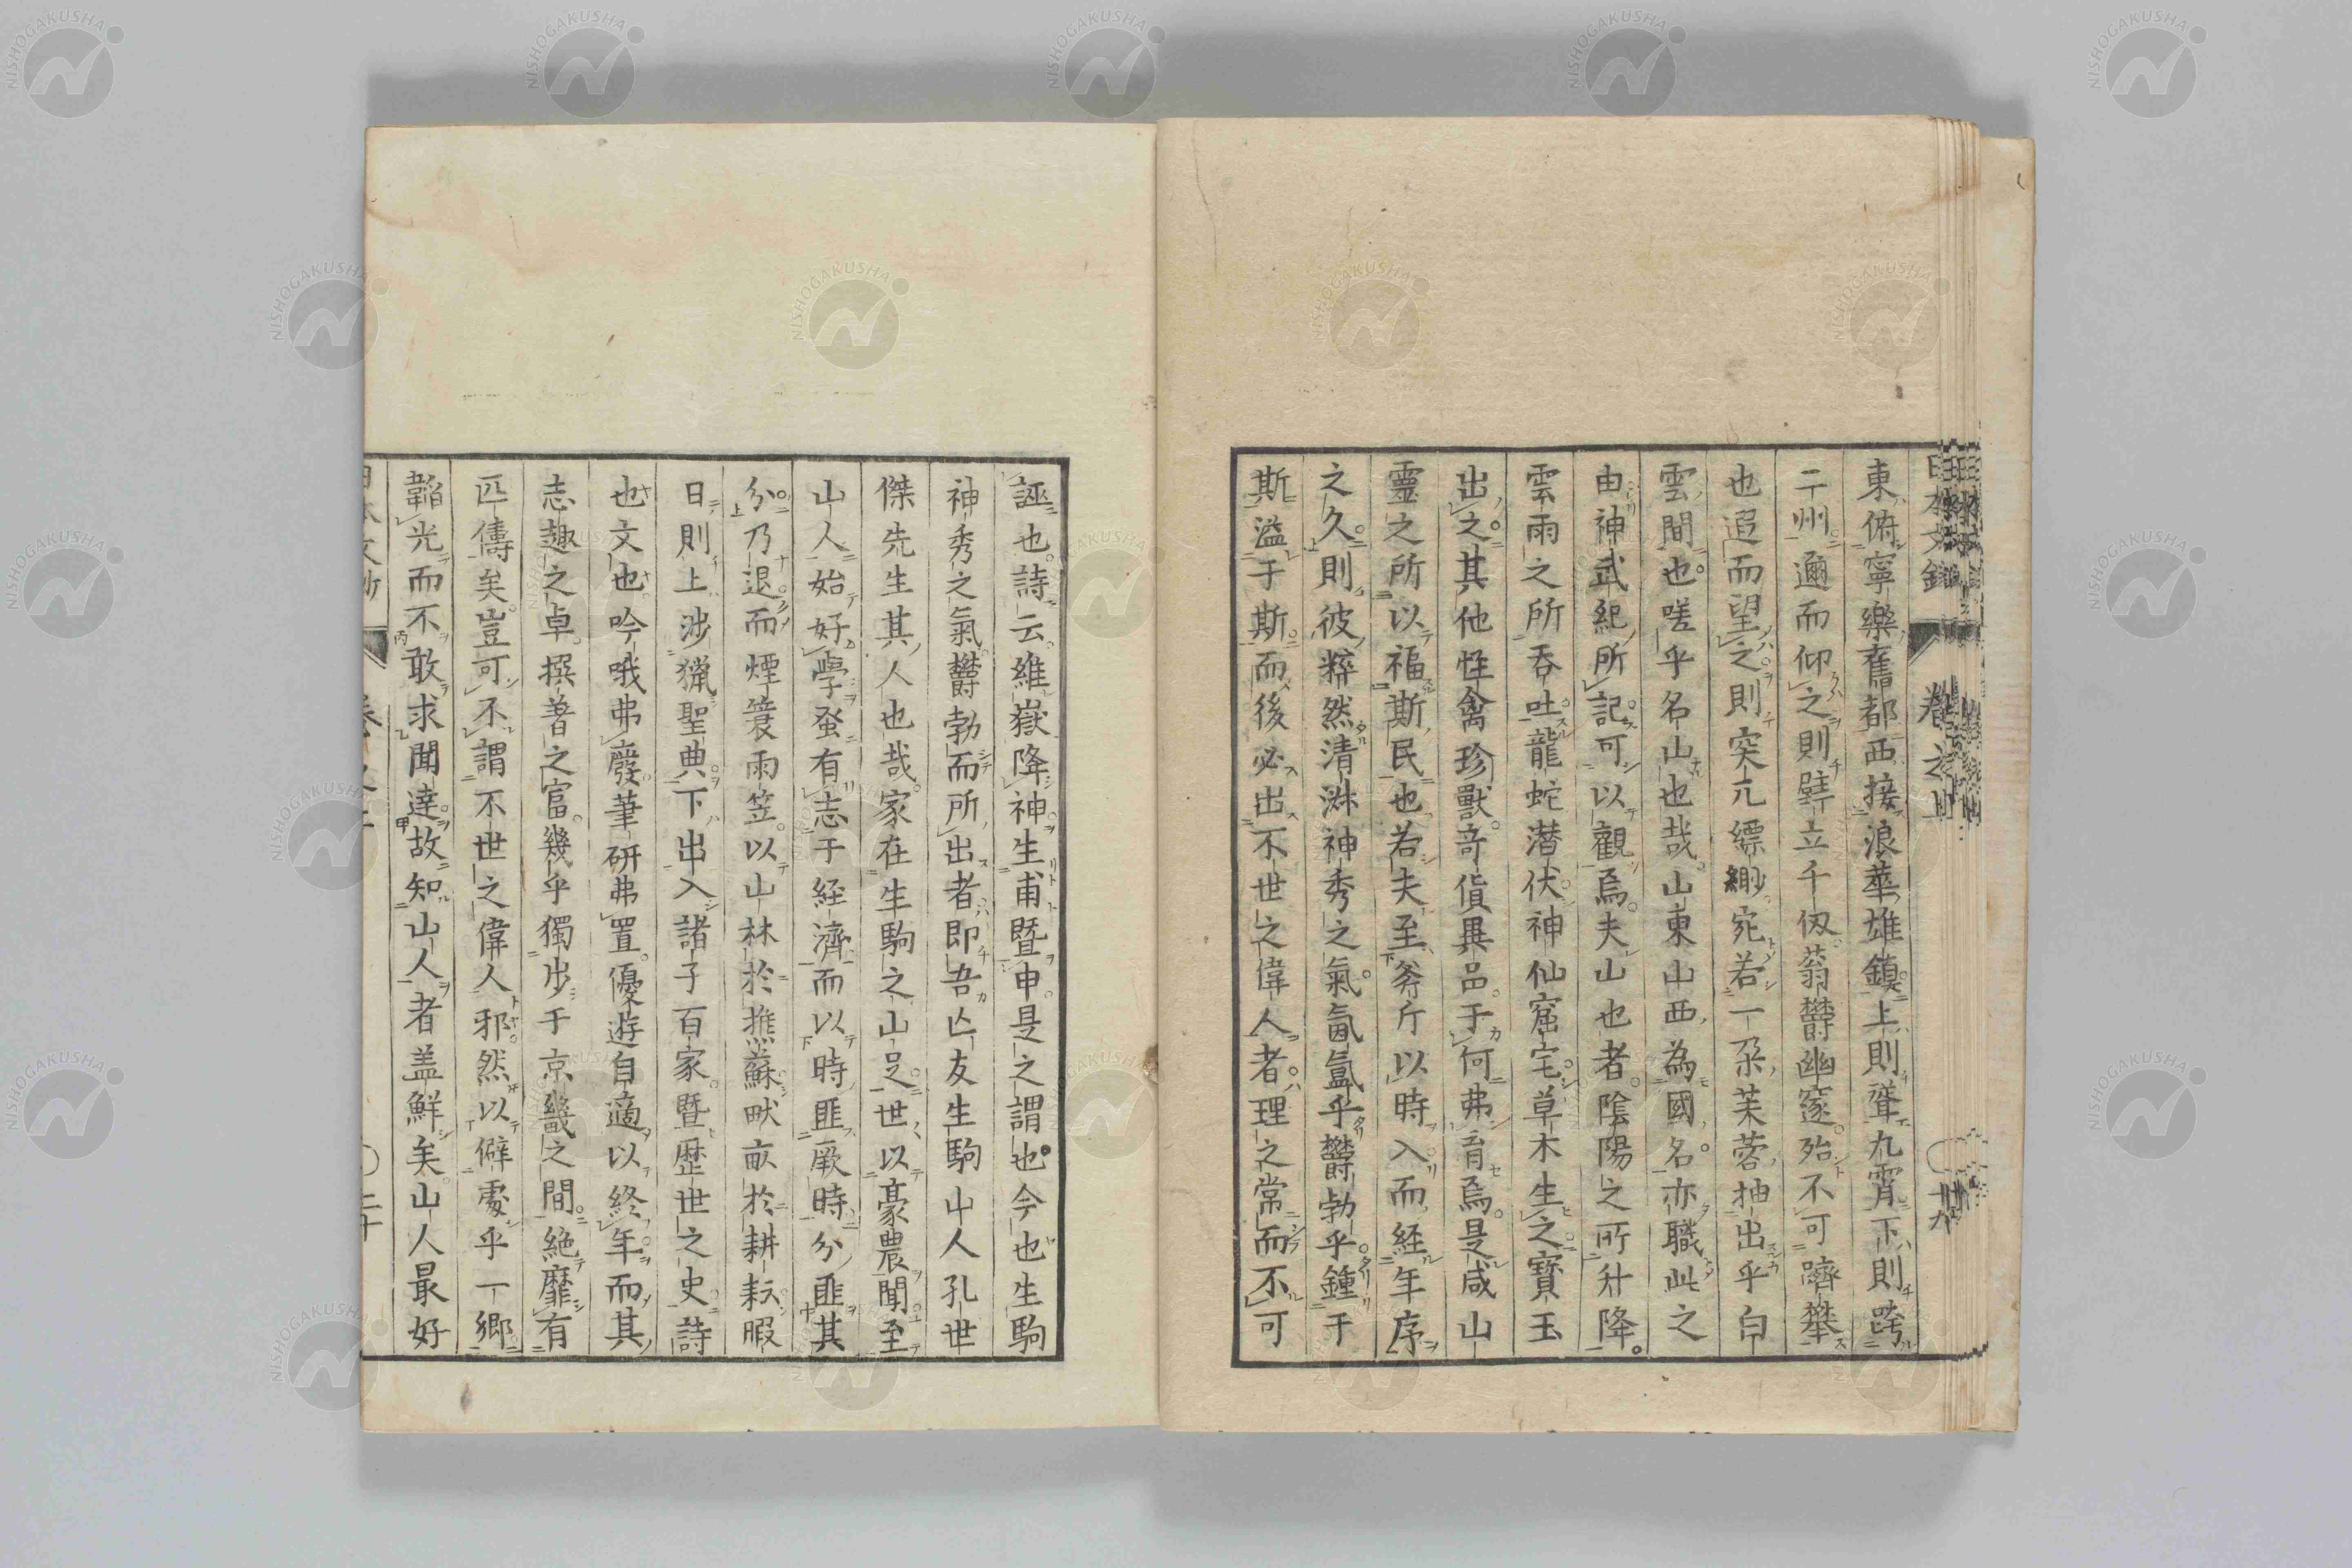 東俯寧樂舊都西接浪華雄鎮上則聳九霄下則跨
二州邇而仰之則壁立千仭蓊欝幽邃殆不可躋攀
也迢而望之則突兀縹緲宛若一朶芙蓉抽出乎白
雲間也嗟乎名山也哉山東山西為國名亦職此之
由神武紀所記可以觀焉夫山也者陰陽之所升降
雲雨之所呑吐龍蛇潜伏神仙窟宅草木生之寳玉
出之其他怪禽珍獸竒貨異品于何弗育焉是咸山
靈之所以福斯民也若夫至斧斤以時入而経年序
之久則彼粹然清淋神秀之氣氤氳乎欝勃乎鍾于
斯溢于斯而後必出不世之偉人者理之常而不可
誣也詩云維嶽降神生甫曁申是之謂也今也生駒
神秀之氣欝勃而所出者即吾亡友生駒山人孔世
傑先生其人也哉家在生駒之山足世以豪農聞至
山人始好學蚤有志于経濟而以時匪厥時分匪其
分乃退而煙簑雨笠以山林於樵蘇畎畝於耕耘暇
日則上涉獵聖典下出入諸子百家曁歴世之史詩
也文也吟哦弗廢筆研弗置優遊自適以終年而其
志趣之卓撰著之富幾乎獨步于京畿之間絶靡有
匹儔矣豈可不謂不世之偉人邪然以僻處乎一鄉
韜光而不敢求聞達故知山人者盖鮮矣山人最好